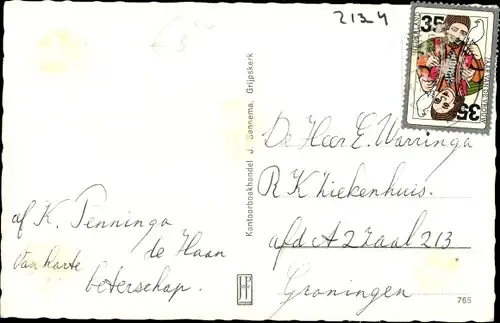 213 4
35
NEDERLAND
35
Kantoorboekhandel J. Bennema, Grijpskerk
De Heer E. Warringa
R K Ziekenhuis.
afd A 2 Zaal 213
Groningen
af K. Penninga
de Haan
van harte
beterschap.
765